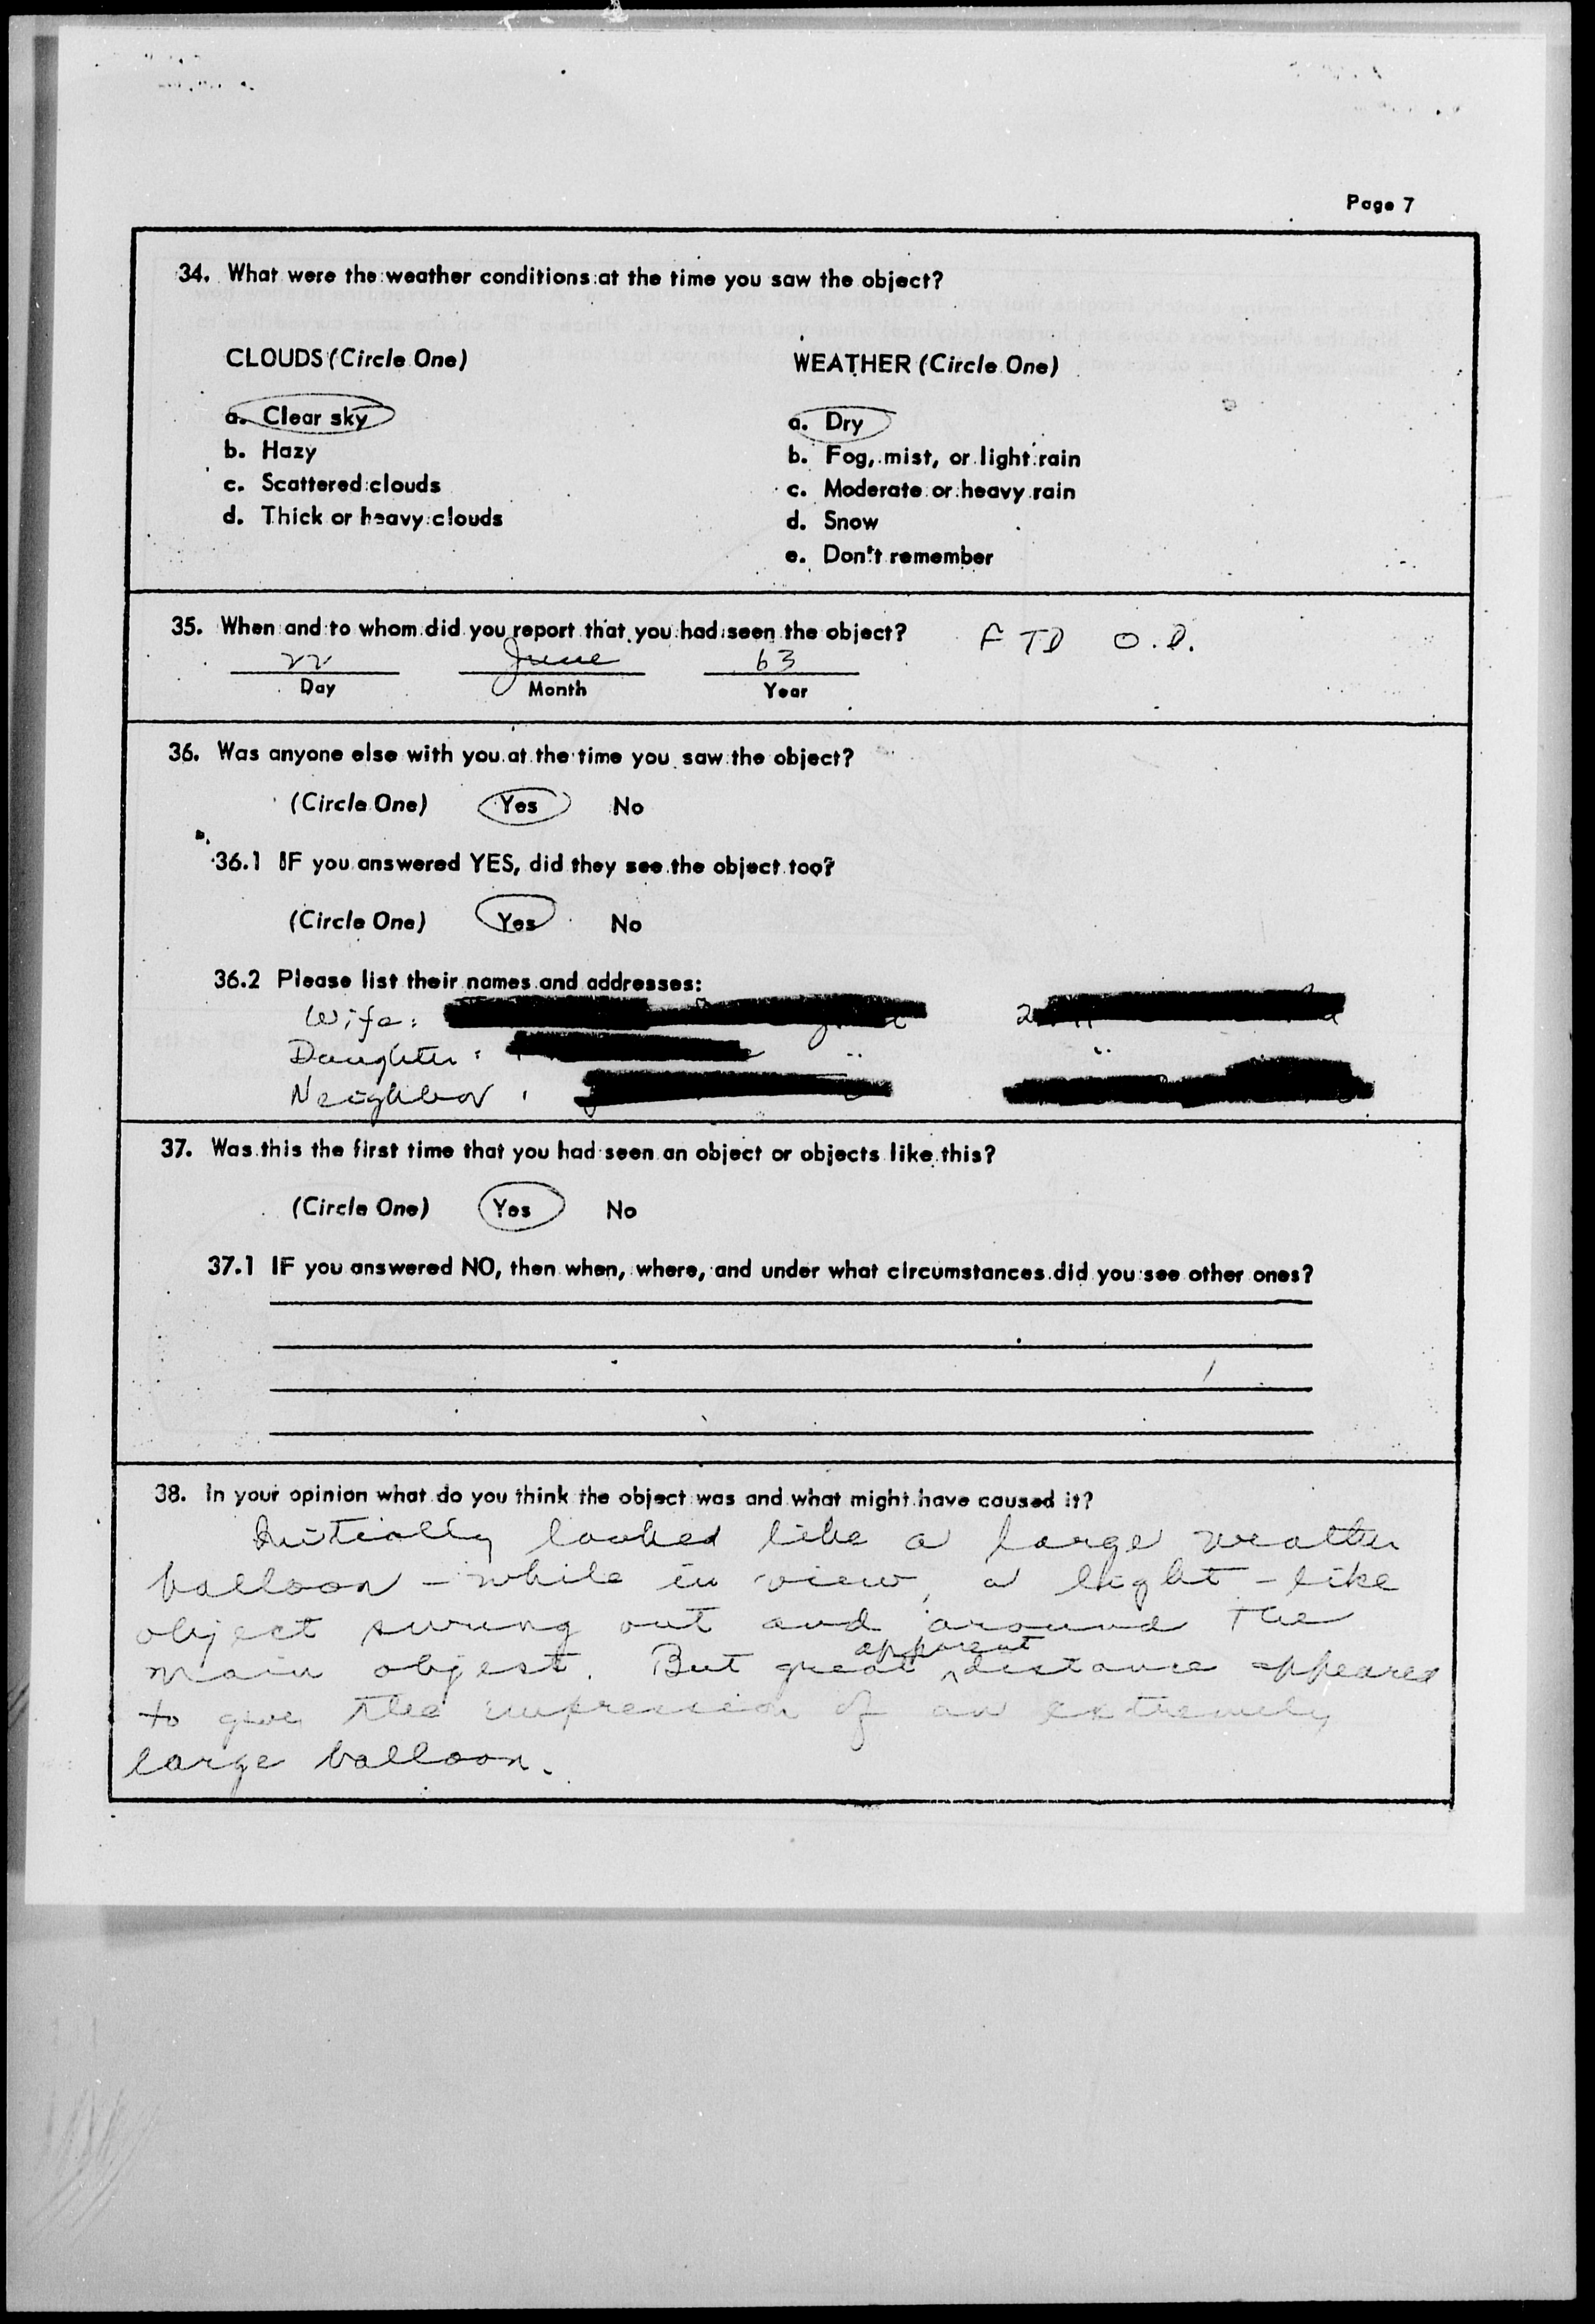 Page 7
34. What were the weather conditions at the time you saw the object?
CLOUDS (Circle One)
WEATHER (Circle One)
a. Clear sky
b. Hazy
c. Scattered clouds
d. Thick or heavy clouds
a. Dry
b. Fog, mist, or light rain
c. Moderate or heavy rain
d. Snow
e. Don't remember
35. When and to whom did you report that you had seen the object? FTD O.D.
22 June 63
Day Month Year
36. Was anyone else with you at the time you saw the object?
(Circle One) Yes No
36.1 IF you answered YES, did they see the object too?
(Circle One) Yes No
36.2 Please list their names and addresses:
Wife:
Daughter:
Neighbor:
37. Was this the first time that you had seen an object or objects like this?
(Circle One) Yes No
37.1 IF you answered NO, then when, where, and under what circumstances did you see other ones?
38. In your opinion what do you think the object was and what might have caused it?
Initially looked like a large weather
balloon - while in view, a light-like
object swung out and around the
main object. But great apparent distance appeared
to give the impression of an extremely
large balloon.